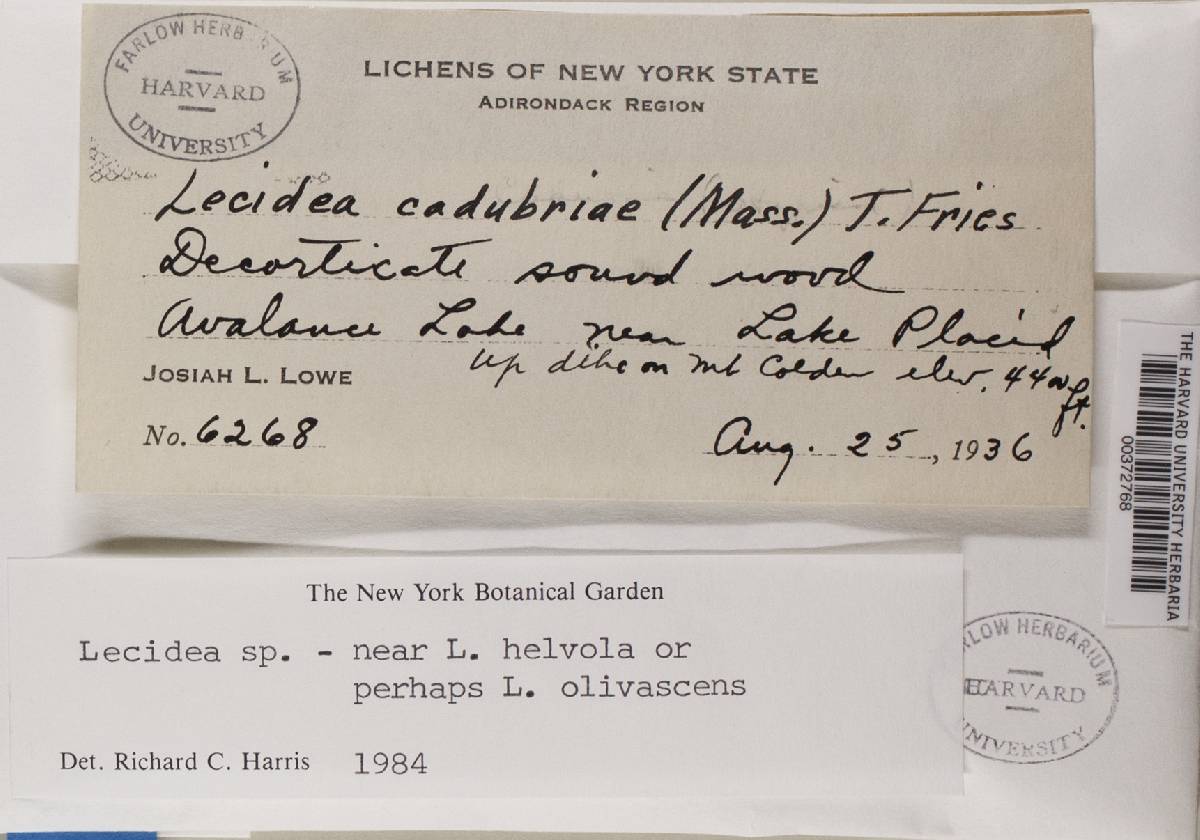 FARLOW HERBARIUM
HARVARD
UNIVERSITY
LICHENS OF NEW YORK STATE
ADIRONDACK REGION
Lecidea cadubriae (Mass.) T. Fries
Decorticate sound wood
Avalance Lake near Lake Placid
up dike on Mt Colden elev. 4400 ft.
JOSIAH L. LOWE
No. 6268
Aug. 25, 1936
THE HARVARD UNIVERSITY HERBARIA
00372768
The New York Botanical Garden
Lecidea sp. - near L. helvola or
perhaps L. olivascens
Det. Richard C. Harris 1984
RLOW HERBARIUM
HARVARD
UNIVERSITY